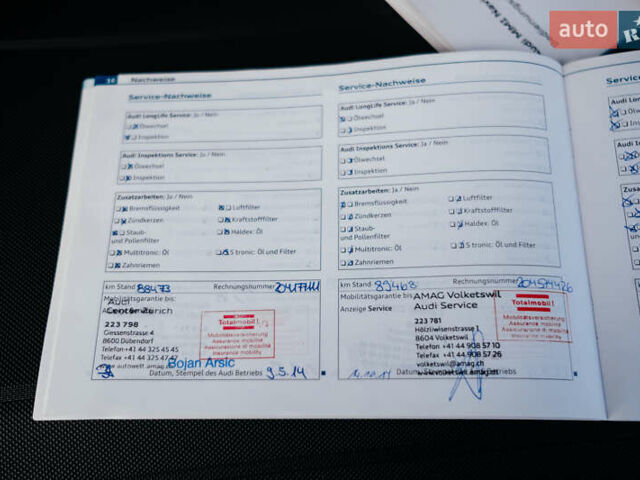 auto
R
Audi MMI Nav
36 Nachweise
Service-Nachweise
Audi LongLife Service: Ja / Nein
Ölwechsel
Inspektion
Audi Inspektions Service: Ja / Nein
Ölwechsel
Inspektion
Zusatzarbeiten: Ja / Nein
Bremsflüssigkeit
Luftfilter
Zündkerzen
Kraftstofffilter
Staub-
und Pollenfilter
Haldex: Öl
Multitronic: Öl
S tronic: Öl und Filter
Zahnriemen
km Stand 88473 Rechnungsnummer
Mobilitätsgarantie bis:
Audi
Center Zürich
223 798
Giessenstrasse 4
8600 Dübendorf
Telefon +41 44 325 45 45
Telefax +41 44 325 45 47
www.autowelt.amag.ch
Totalmobil!
Mobilitätsversicherung
Assurance mobilité
Assicurazione di mobilità
Insurance mobility
Bojan Arsic
Datum, Stempel des Audi Betriebs 9.5.14
Service-Nachweise
Audi LongLife Service: Ja / Nein
Ölwechsel
Inspektion
Audi Inspektions Service: Ja / Nein
Ölwechsel
Inspektion
Zusatzarbeiten: Ja / Nein
Bremsflüssigkeit
Luftfilter
Zündkerzen
Kraftstofffilter
Staub-
und Pollenfilter
Haldex: Öl
Multitronic: Öl
S tronic: Öl und Filter
Zahnriemen
km Stand 89468 Rechnungsnummer
Mobilitätsgarantie bis:
AMAG Volketswil
Anzeige Service
Audi Service
223 781
Hölzliwisenstrasse
8604 Volketswil
Telefon +41 44 908 57 10
Telefax +41 44 908 57 26
volketswil@amag.ch
www.volketswil.amag.ch
Totalmobil!
Mobilitätsversicherung
Assurance mobilité
Assicurazione di mobilità
Insurance mobility
Datum, Stempel des Audi Betriebs
Service
Audi Lon
Ölw
Insp
Audi In
Zusatz